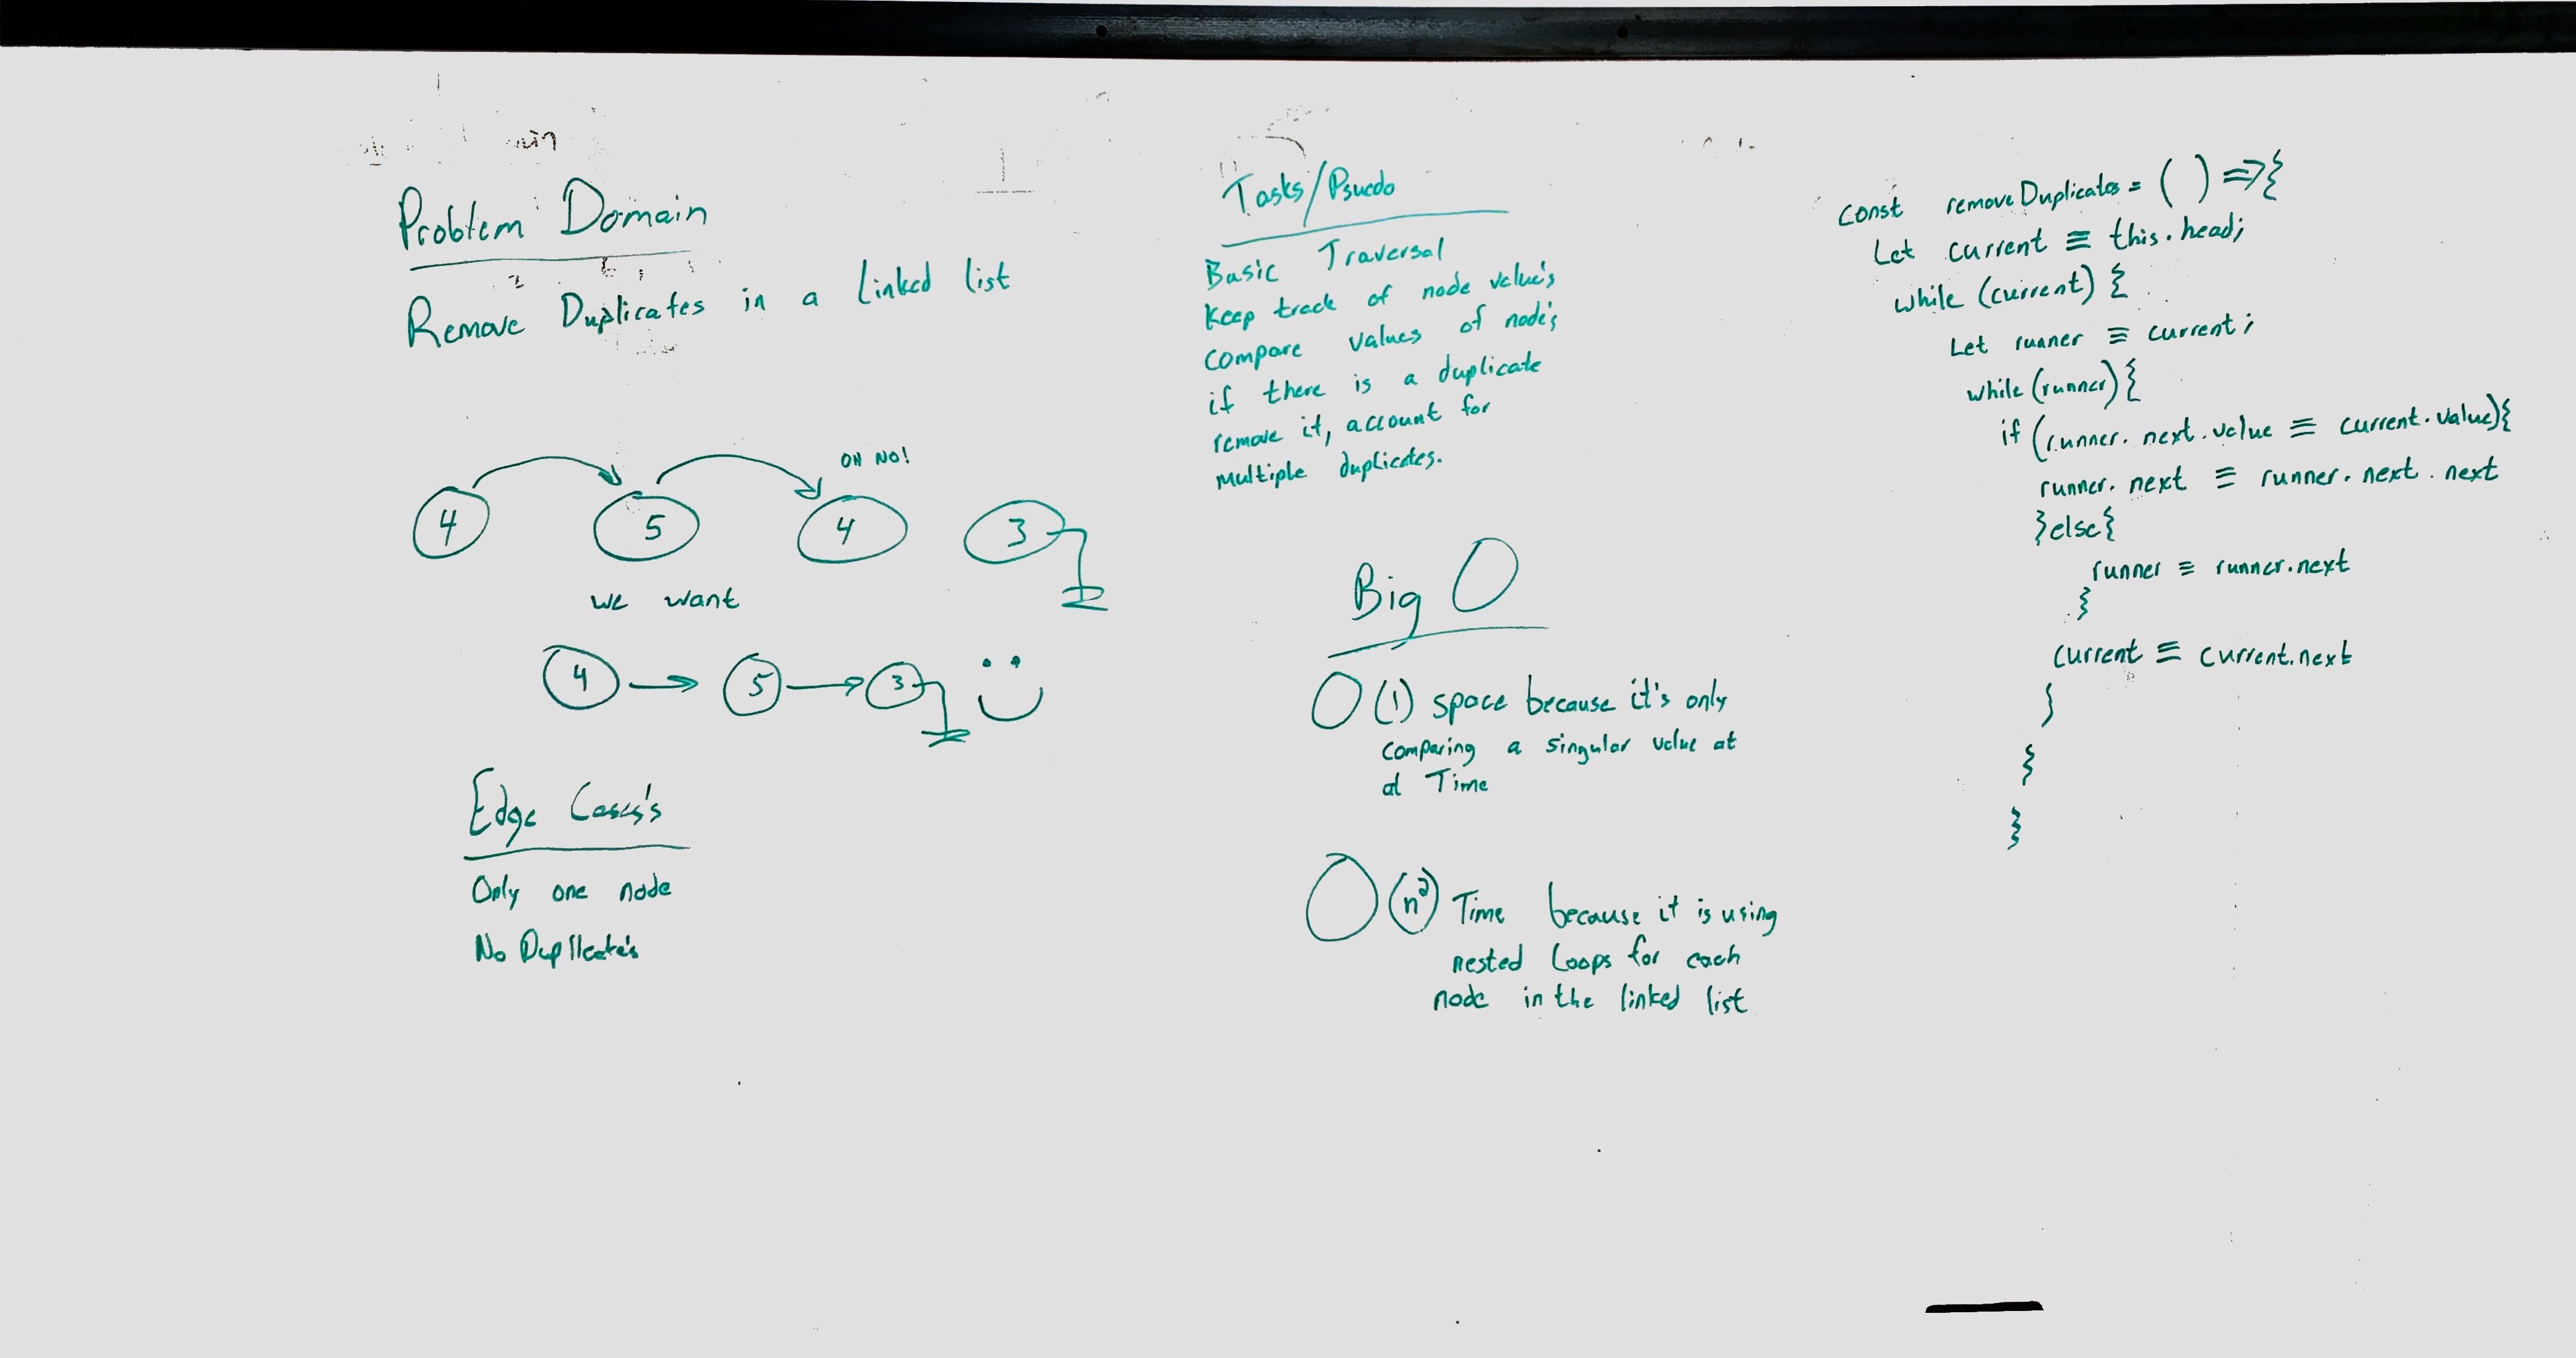 Problem Domain
Remove Duplicates in a linked list
OH NO!
4 5 4 3
we want
4 5 3
Edge Cases's
Only one node
No Duplicate's
Tasks/Psuedo
Basic Traversal
Keep track of node value's
compare values of node's
if there is a duplicate
remove it, account for
multiple duplicates.
Big O
O(1) space because it's only
comparing a singular value at
at Time
O(n²) Time because it is using
nested loops for each
node in the linked list
const removeDuplicates = ( ) => {
Let current ≡ this.head;
while (current) {
Let runner ≡ current;
while (runner) {
if (runner.next.value ≡ current.value) {
runner.next ≡ runner.next.next
} else {
runner ≡ runner.next
}
current ≡ current.next
}
}
}